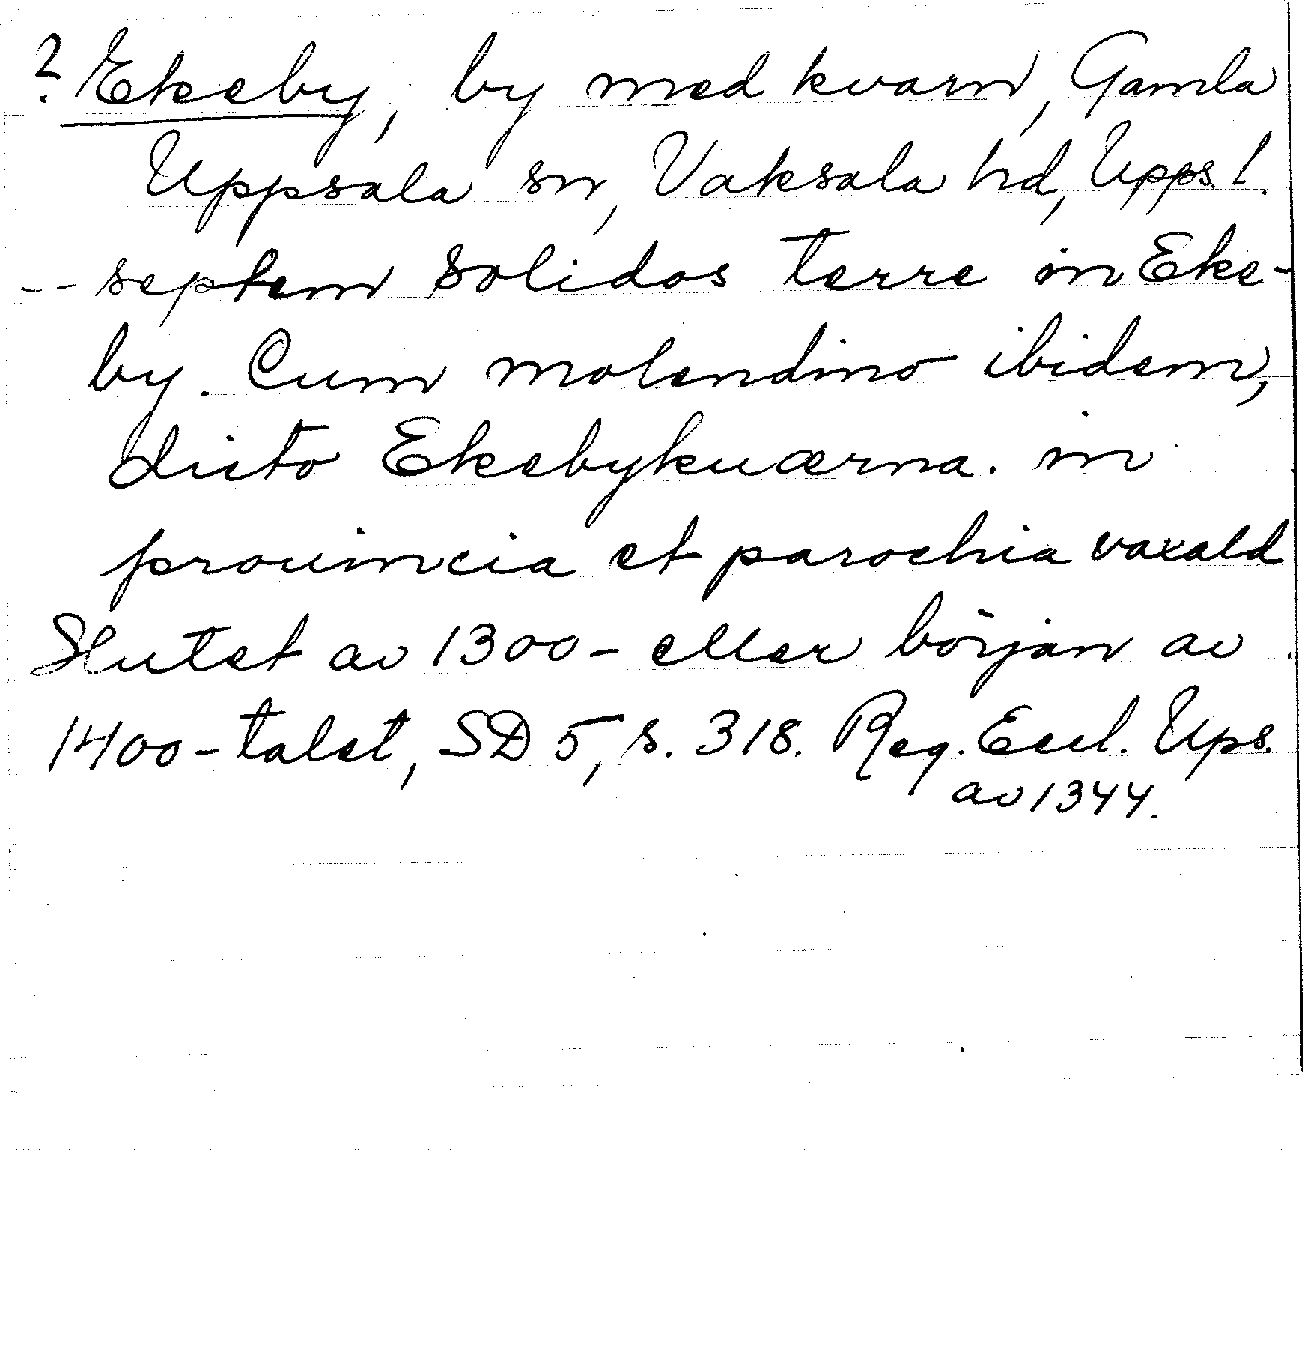 ? Ekeby, by med kvarn, Gamla
Uppsala sn, Vaksala hd, Upps l.
-- septem solidos terre in Eke-
by. Cum molendino ibidem,
dicto Ekebykuærna. in
prouincia et parochia vaxald
Slutet av 1300- eller början av
1400-talet, SD 5, s. 318. Reg. Eccl. Ups.
av 1344.